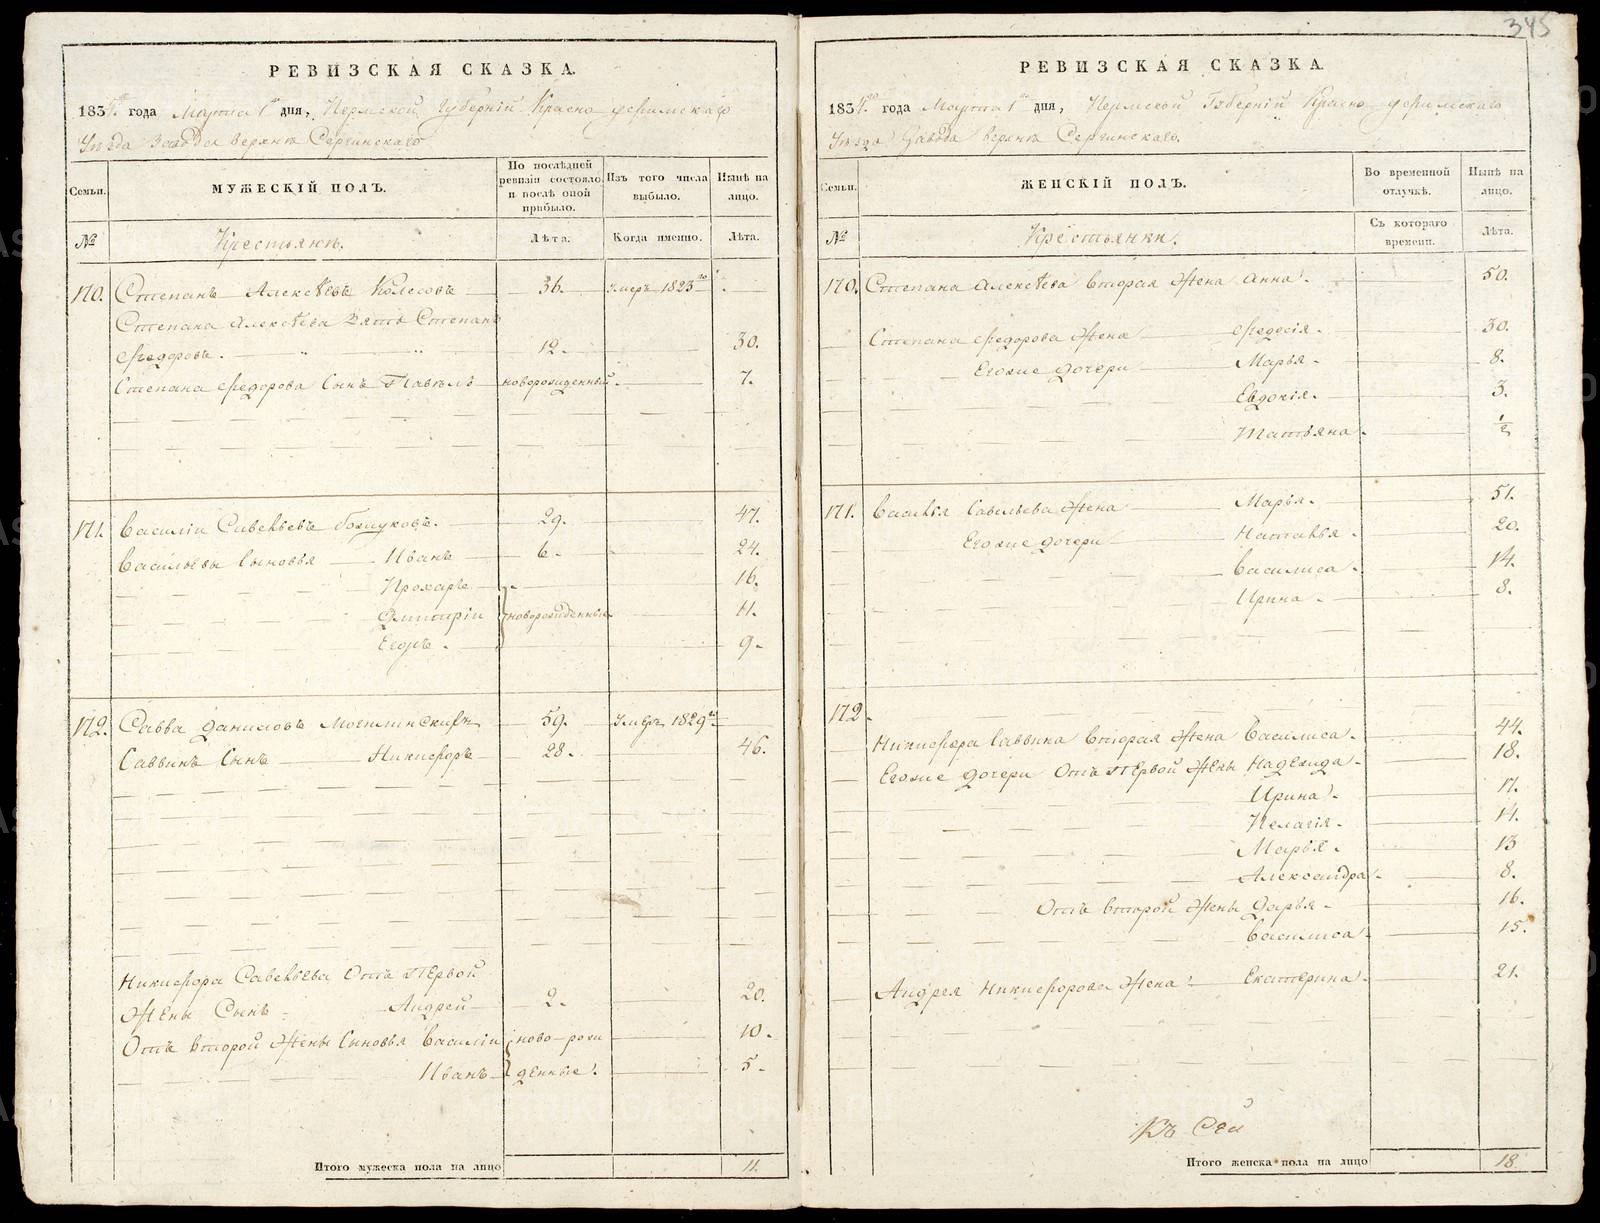 345
РЕВИЗСКАЯ СКАЗКА.
1834го года Марта 1го дня, Пермской Губернiи Красно уфимскаго
Уѣзда Завода Верхнъ Сергинскаго
Семьи.
МУЖЕСКIЙ ПОЛЪ.
По послѣдней ревизiи состояло, и послѣ оной прибыло.
Изъ того числа выбыло.
Нынѣ на лицо.
№
Крестьянъ.
Лѣта.
Когда именно.
Лѣта.
170. Степанъ Алексѣевъ Колесовъ 36. Умеръ 1823го
Степана Алексѣева Зять Степанъ
Ѳедоровъ. 12. 30.
Степана Ѳедорова Сынъ Павелъ новорожденный. 7.
171. Василiи Савельевъ 29. 47.
Васильевы Сыновья Иванъ 6. 24.
Прохоръ 16.
Дмитрiи новорожденные 11.
Егоръ. 9.
172. Савва Даниловъ 59. Умеръ 1829го
Саввинъ Сынъ Никифоръ 28. 46.
Никифора Савельева Отъ Первой
Жены Сынъ Андрей 2. 20.
Отъ Второй Жены Сыновья Василiи ново-рож 10.
Иванъ денные. 5.
Итого мужеска пола на лицо 11.
РЕВИЗСКАЯ СКАЗКА.
1834го года Марта 1го дня, Пермской Губернiй Красно уфимскаго
Уѣзда Завода Верхнъ Сергинскаго.
Семьи.
ЖЕНСКIЙ ПОЛЪ.
Во временной отлучкѣ.
Нынѣ на лицо.
№
Крестьянки.
Съ котораго времени.
Лѣта.
170. Степана Алексѣева Вторая Жена Анна. 50.
Степана Ѳедорова Жена Ѳедосiя. 30.
Егоже дочери Марья. 8.
Евдокiя. 3.
Татьяна. 1/2
171. Василья Савельева Жена Марья. 51.
Егоже дочери Наталья. 20.
Василиса. 14.
Ирина. 8.
172.
Никифора Саввина Вторая Жена Василиса. 44.
Егоже дочери Отъ Первой Жены Надежда. 18.
Ирина. 17.
Пелагiя. 14.
Марья. 13
Александра. 8.
Отъ Второй Жены Дарья. 16.
Василиса. 15.
Андрея Никифорова Жена Екатерина. 21.
Къ Сей
Итого женска пола на лицо 18